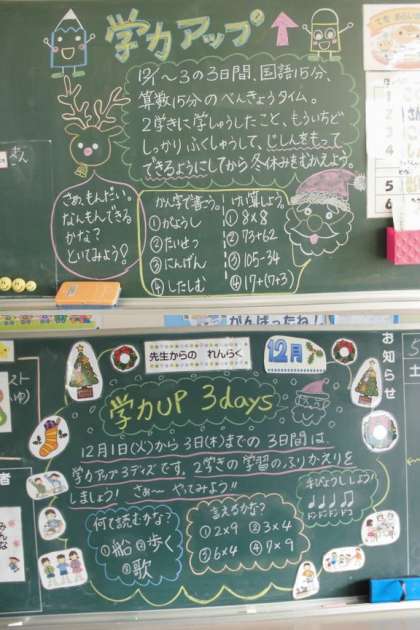 学力アップ
12/1〜3の3日間、国語15分、
算数15分のべんきょうタイム。
2学きに学しゅうしたこと、もういちど
しっかりふくしゅうして、じしんをもって
できるようにしてから冬休みをむかえよう。
さあ、もんだい。
なんもんできる
かな?
といてみよう!
かん字で書こう。
①がようし
②たいせつ
③にんげん
④したしむ
けい算しよう。
①8×8
②73+62
③105-34
④17+(7+3)
がんばったね!
先生からの れんらく
12月
お知らせ
学力UP 3days
12月1日(火)から3日(木)までの3日間は、
学力アップ3デイズです。2学きの学習のふりかえりを
しましょう! さぁ〜 やってみよう!!
何て読むかな?
①船 ②歩く
③歌
言えるかな?
①2×9 ②3×4
③6×4 ④7×9
手びょうししよう!
♩ ♩ ♩ ♩
5
土
みんな